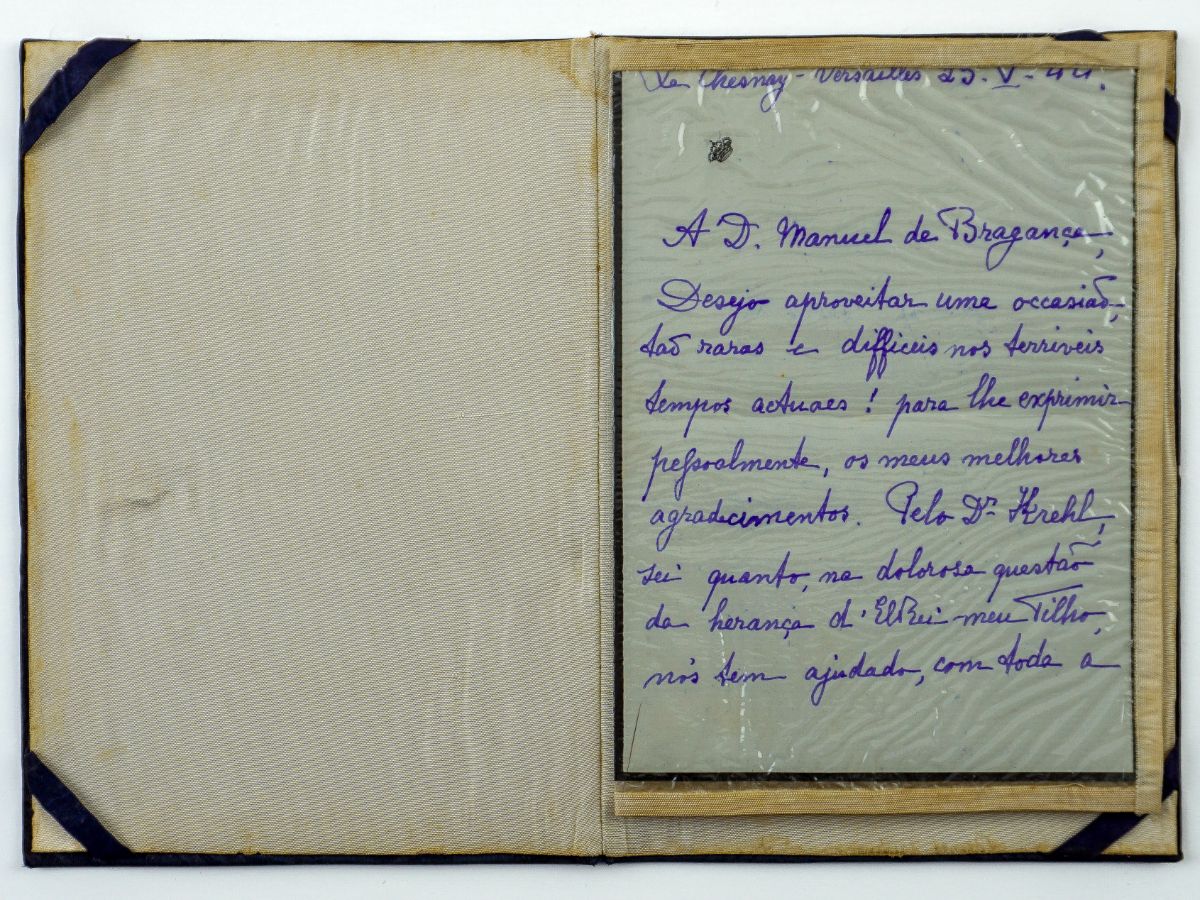 Le Chesnay - Versailles 25-V-44.
A D. Manuel de Bragança,
Desejo aproveitar uma occasião,
taõ raras e difficeis nos terriveis
tempos actuaes! para lhe exprimir
peſsoalmente, os meus melhores
agradecimentos. Pelo Dr Krehl,
sei quanto, na dolorosa questão
da herança d'ElRei meu Filho,
nós tem ajudado, com toda a